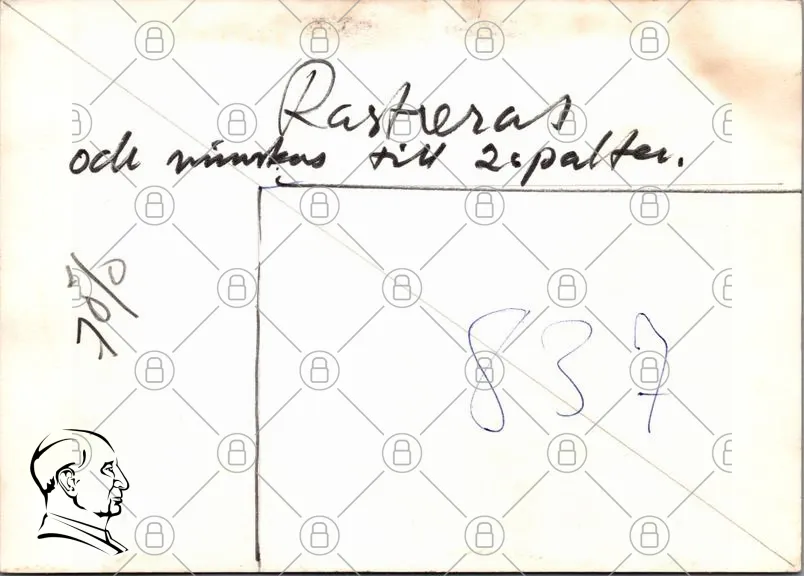 Rastreras
och minskas till 2 spalter.
70%
837